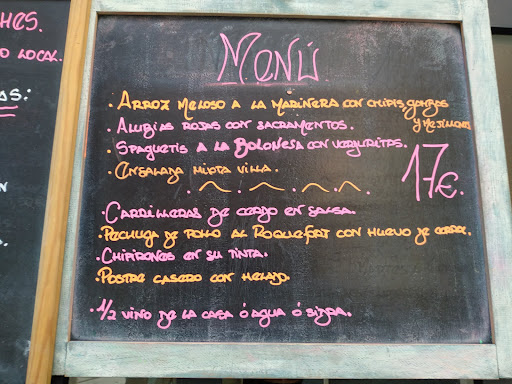 HES.
O LOCAL.
AS:
N
Menú
· Arroz meloso a la marinera con chipis, gambas
y mejillones
· Alubias rojas con sacramentos.
· Spaguetis a la Bolonesa con verduritas.
· Ensalada mixta villa.
17€.
· Carrilleras de cerdo en salsa.
· Pechuga de pollo al Roquefort con huevo de corral.
· Chipirones en su tinta.
· Postre casero con helado.
· 1/2 vino de la casa ó agua ó sidra.